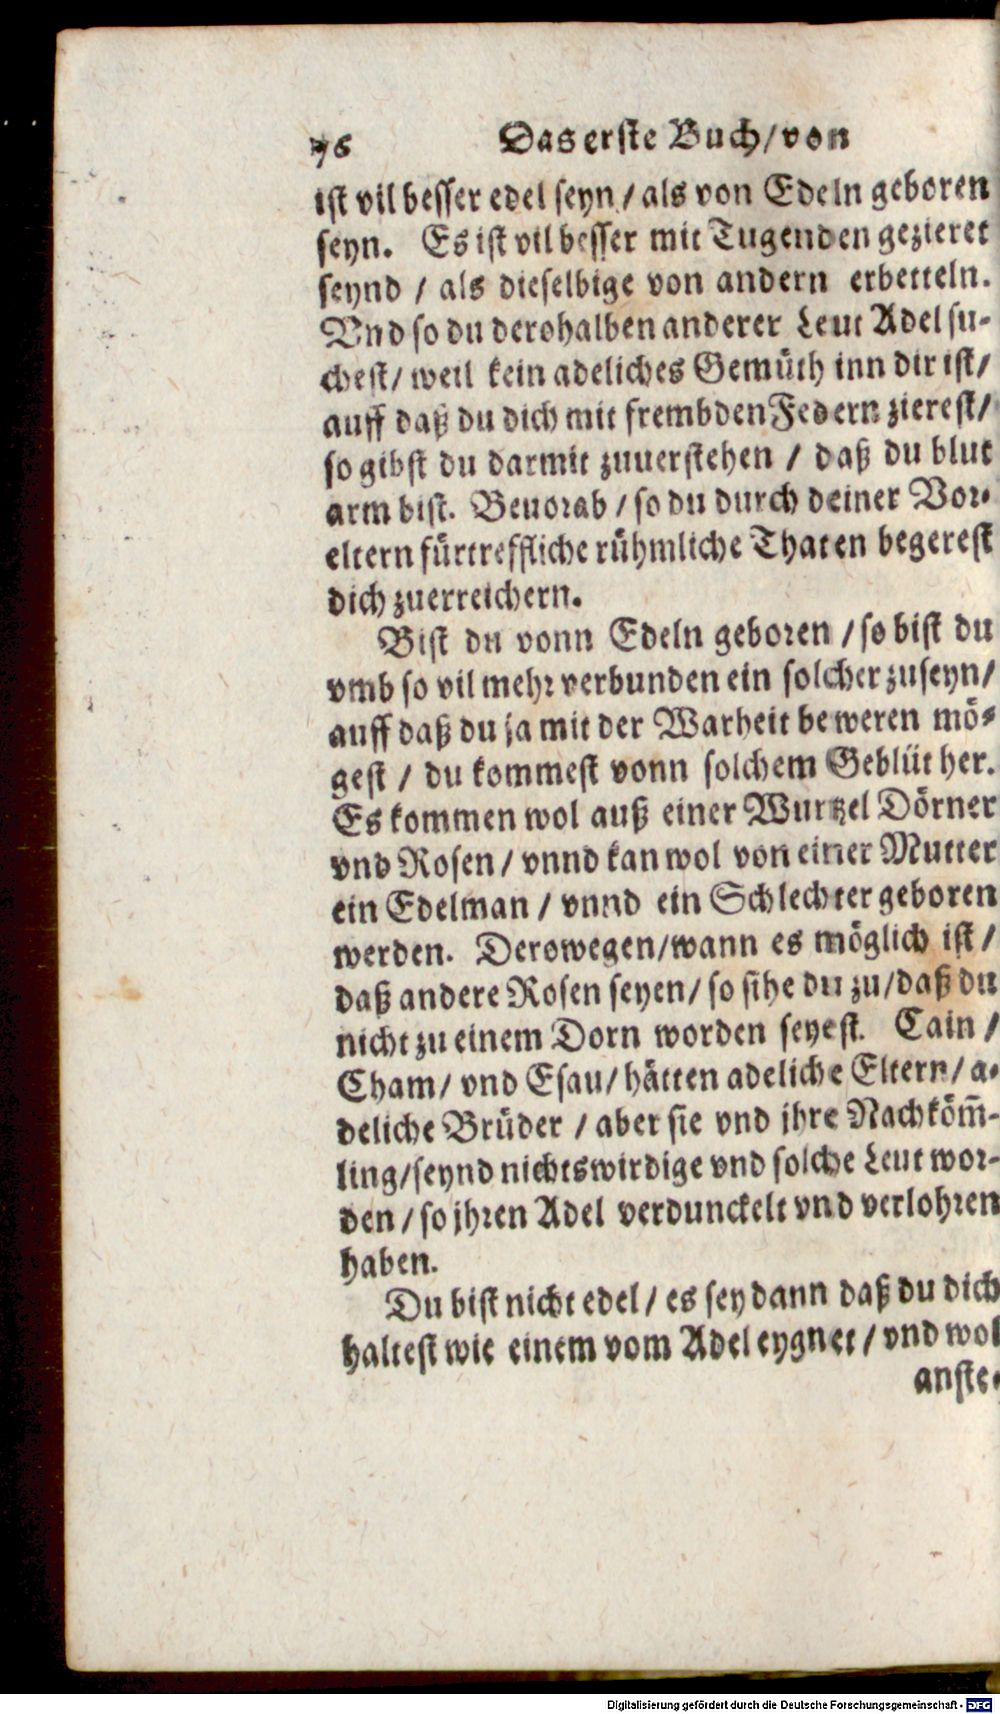 76 Das erste Buch/von
ist vil besser edel seyn / als von Edeln geboren
seyn. Es ist vil besser mit Tugenden gezieret
seynd / als dieselbige von andern erbetteln.
Vnd so du derohalben anderer Leut Adel su-
chest/ weil kein adeliches Gemüth inn dir ist/
auff daß du dich mit frembden Federn zierest/
so gibst du darmit zuuerstehen / daß du blut
arm bist. Beuorab / so du durch deiner Vor-
eltern fürtreffliche rühmliche Thaten begerest
dich zuerreichern.
Bist du vonn Edeln geboren / so bist du
vmb so vil mehr verbunden ein solcher zuseyn/
auff daß du ja mit der Warheit beweren mö-
gest / du kommest vonn solchem Geblüt her.
Es kommen wol auß einer Wurtzel Dörner
vnd Rosen / vnnd kan wol von einer Mutter
ein Edelman / vnnd ein Schlechter geboren
werden. Derowegen/wann es möglich ist /
daß andere Rosen seyen/ so sihe du zu/daß du
nicht zu einem Dorn worden seyest. Cain /
Cham/ vnd Esau/ hätten adeliche Eltern/ a-
deliche Brüder / aber sie vnd jhre Nachköm̄-
ling/seynd nichtswirdige vnd solche Leut wor-
den / so jhren Adel verdunckelt vnd verlohren
haben.
Du bist nicht edel / es sey dann daß du dich
haltest wie einem vom Adel eygnet / vnd wol
anste-
Digitalisierung gefördert durch die Deutsche Forschungsgemeinschaft - DFG